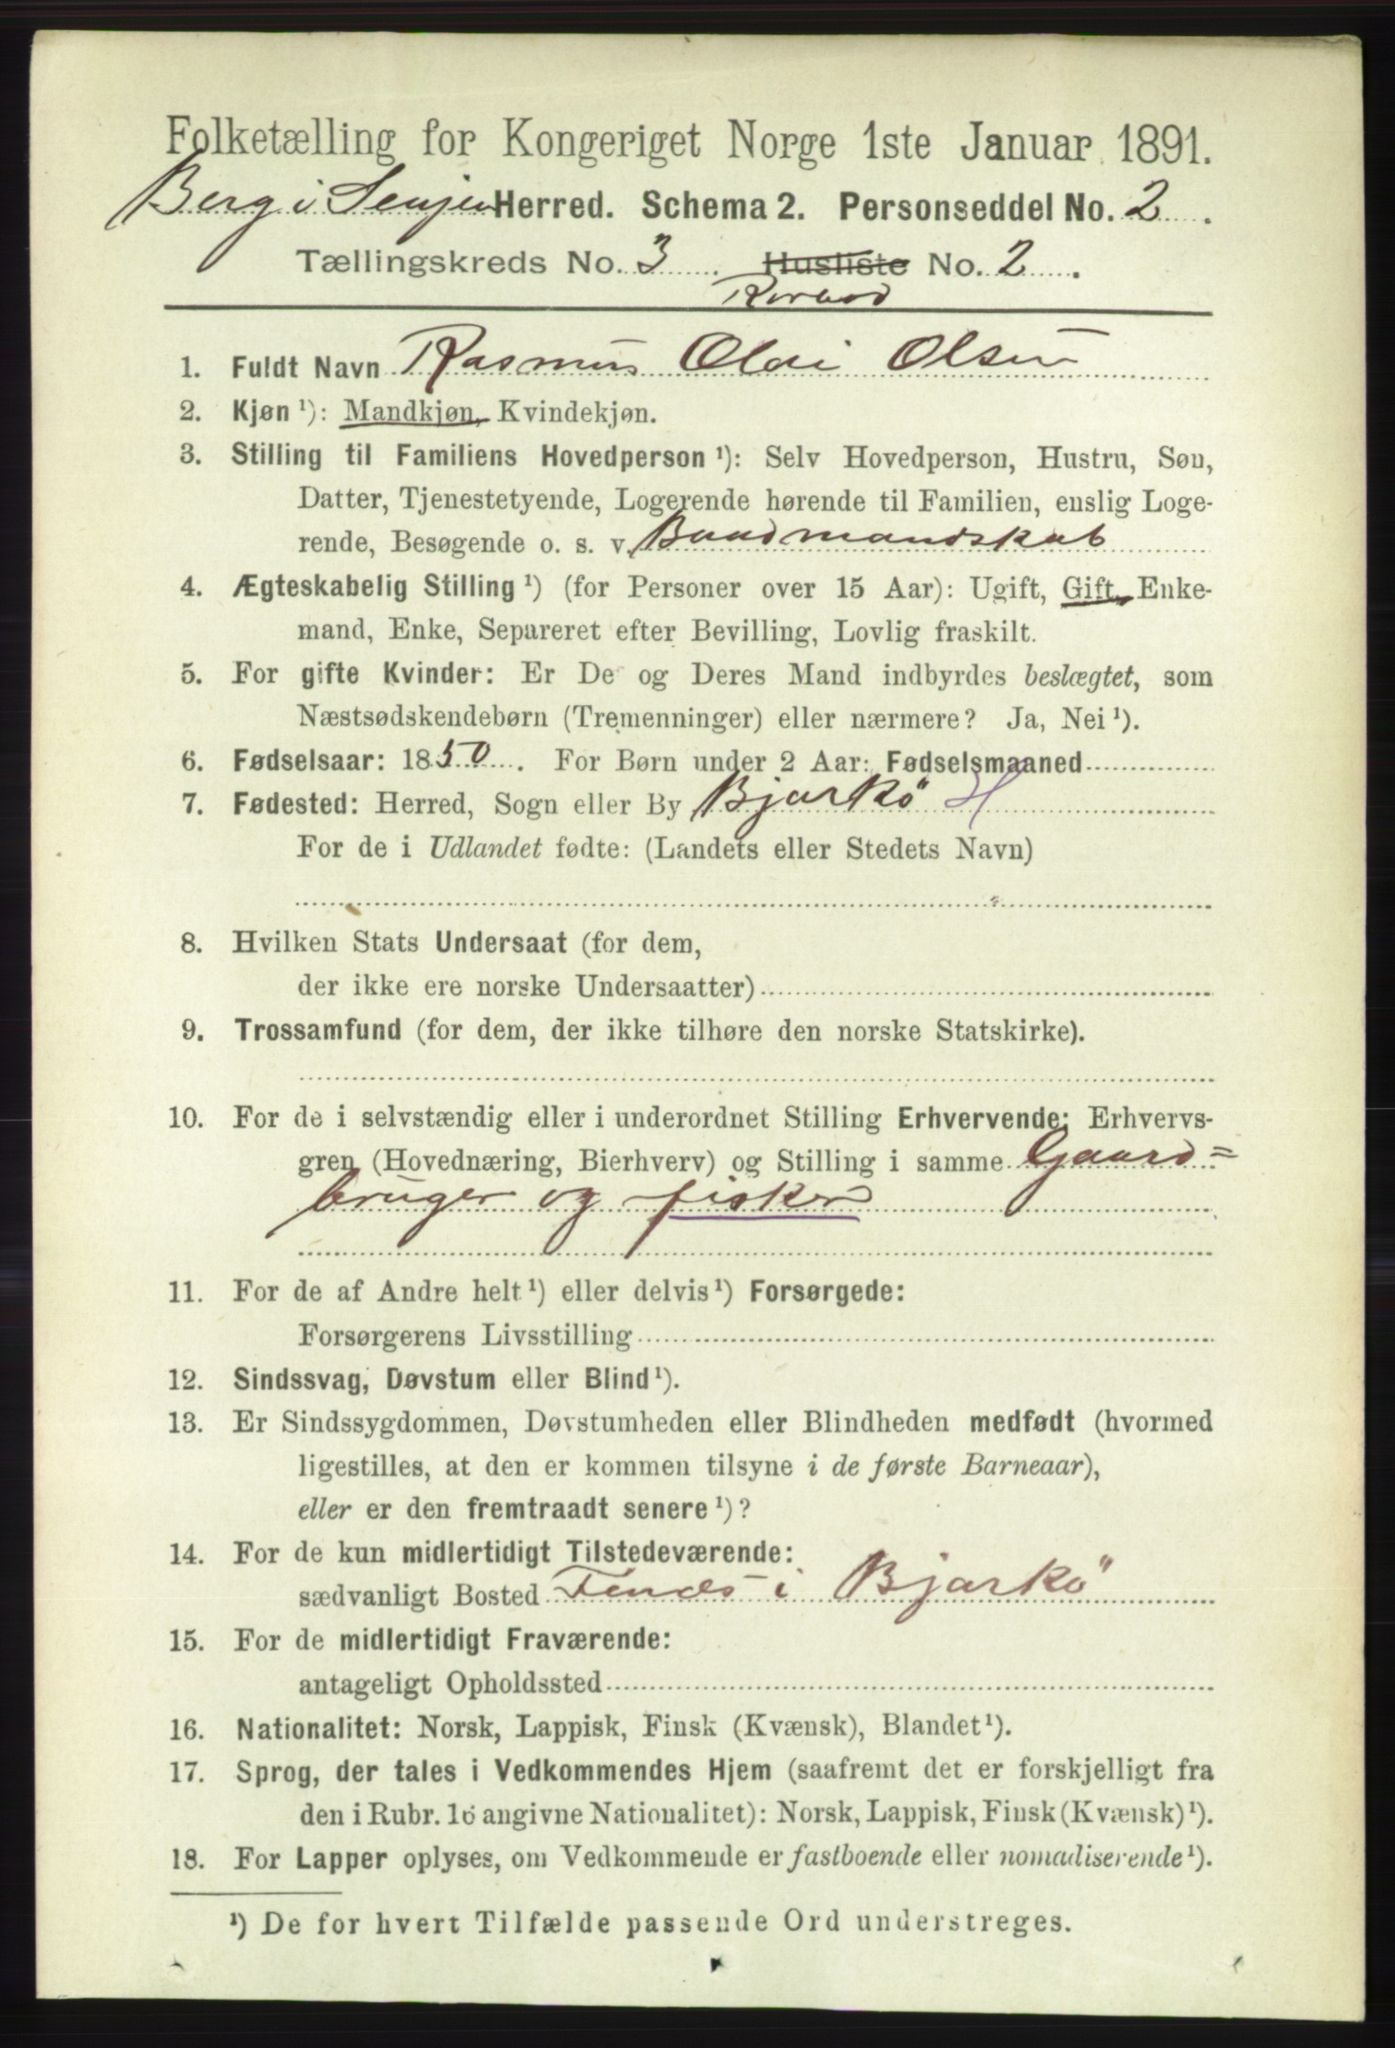 Folketælling for Kongeriget Norge 1ste Januar 1891.
Berg i Senjen Herred. Schema 2. Personseddel No. 2.
Tællingskreds No. 3 Husliste No. 2.
Rorbod
1. Fuldt Navn Rasmus Olai Olsen
2. Kjøn ¹): Mandkjøn, Kvindekjøn.
3. Stilling til Familiens Hovedperson ¹): Selv Hovedperson, Hustru, Søn,
Datter, Tjenestetyende, Logerende hørende til Familien, enslig Loge-
rende, Besøgende o. s. v. Baadmandskab
4. Ægteskabelig Stilling ¹) (for Personer over 15 Aar): Ugift, Gift, Enke-
mand, Enke, Separeret efter Bevilling, Lovlig fraskilt.
5. For gifte Kvinder: Er De og Deres Mand indbyrdes beslægtet, som
Næstsødskendebørn (Tremenninger) eller nærmere? Ja, Nei ¹).
6. Fødselsaar: 1850. For Børn under 2 Aar: Fødselsmaaned
7. Fødested: Herred, Sogn eller By Bjarkö H
For de i Udlandet fødte: (Landets eller Stedets Navn)
8. Hvilken Stats Undersaat (for dem,
der ikke ere norske Undersaatter)
9. Trossamfund (for dem, der ikke tilhøre den norske Statskirke).
10. For de i selvstændig eller i underordnet Stilling Erhvervende: Erhvervs-
gren (Hovednæring, Bierhverv) og Stilling i samme Gaard=
bruger og fisker
11. For de af Andre helt ¹) eller delvis ¹) Forsørgede:
Forsørgerens Livsstilling
12. Sindssvag, Døvstum eller Blind ¹).
13. Er Sindssygdommen, Døvstumheden eller Blindheden medfødt (hvormed
ligestilles, at den er kommen tilsyne i de første Barneaar),
eller er den fremtraadt senere ¹)?
14. For de kun midlertidigt Tilstedeværende:
sædvanligt Bosted i Bjarkö
15. For de midlertidigt Fraværende:
antageligt Opholdssted
16. Nationalitet: Norsk, Lappisk, Finsk (Kvænsk), Blandet ¹).
17. Sprog, der tales i Vedkommendes Hjem (saafremt det er forskjelligt fra
den i Rubr. 16 angivne Nationalitet): Norsk, Lappisk, Finsk (Kvænsk) ¹).
18. For Lapper oplyses, om Vedkommende er fastboende eller nomadiserende ¹).
¹) De for hvert Tilfælde passende Ord understreges.